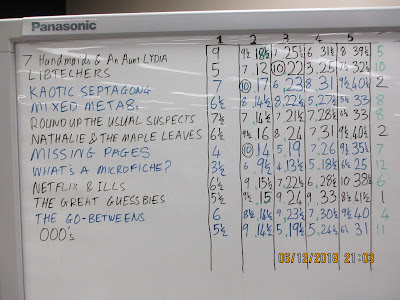 Panasonic
1 2 3 4 5
7 Handmaids & An Aunt LYDIA 9 9½ 18½ 7 25½ 6 31½ 8 39½ 5
LIBTECHERS 5 7 12 10 22 3 25 7½ 32½ 10
KAOTIC SEPTAGONG 7 10 17 6 23 8 31 40 2
MIXED 6½ 8 14½ 8 22½ 5 27½ 5½ 33 8
ROUND UP THE USUAL SUSPECTS 7½ 7 14½ 7 21½ 7 28½ 33 8
NATHALIE & THE MAPLE LEAVES 6½ 16 8 24 7 31 40 2
MISSING PAGES 4 10 14 5 19 7 26 9½ 35½ 7
WHAT'S A MICROFICHE? 3½ 6 9½ 4 13½ 5 18½ 6½ 25 12
NETFLIX & ILLS 6½ 9 15½ 7 22½ 6 28½ 10 38½ 6
THE GREAT GUESSBIES 5½ 9½ 15 9 24 33½ 8 41½ 1
THE GO-BETWEENS 6 8½ 14½ 9 23½ 7 30½ 9½ 40 4
OOO's 5½ 9 14½ 5 19½ 5 24½ 6½ 31 11
06/12/2019 21:03